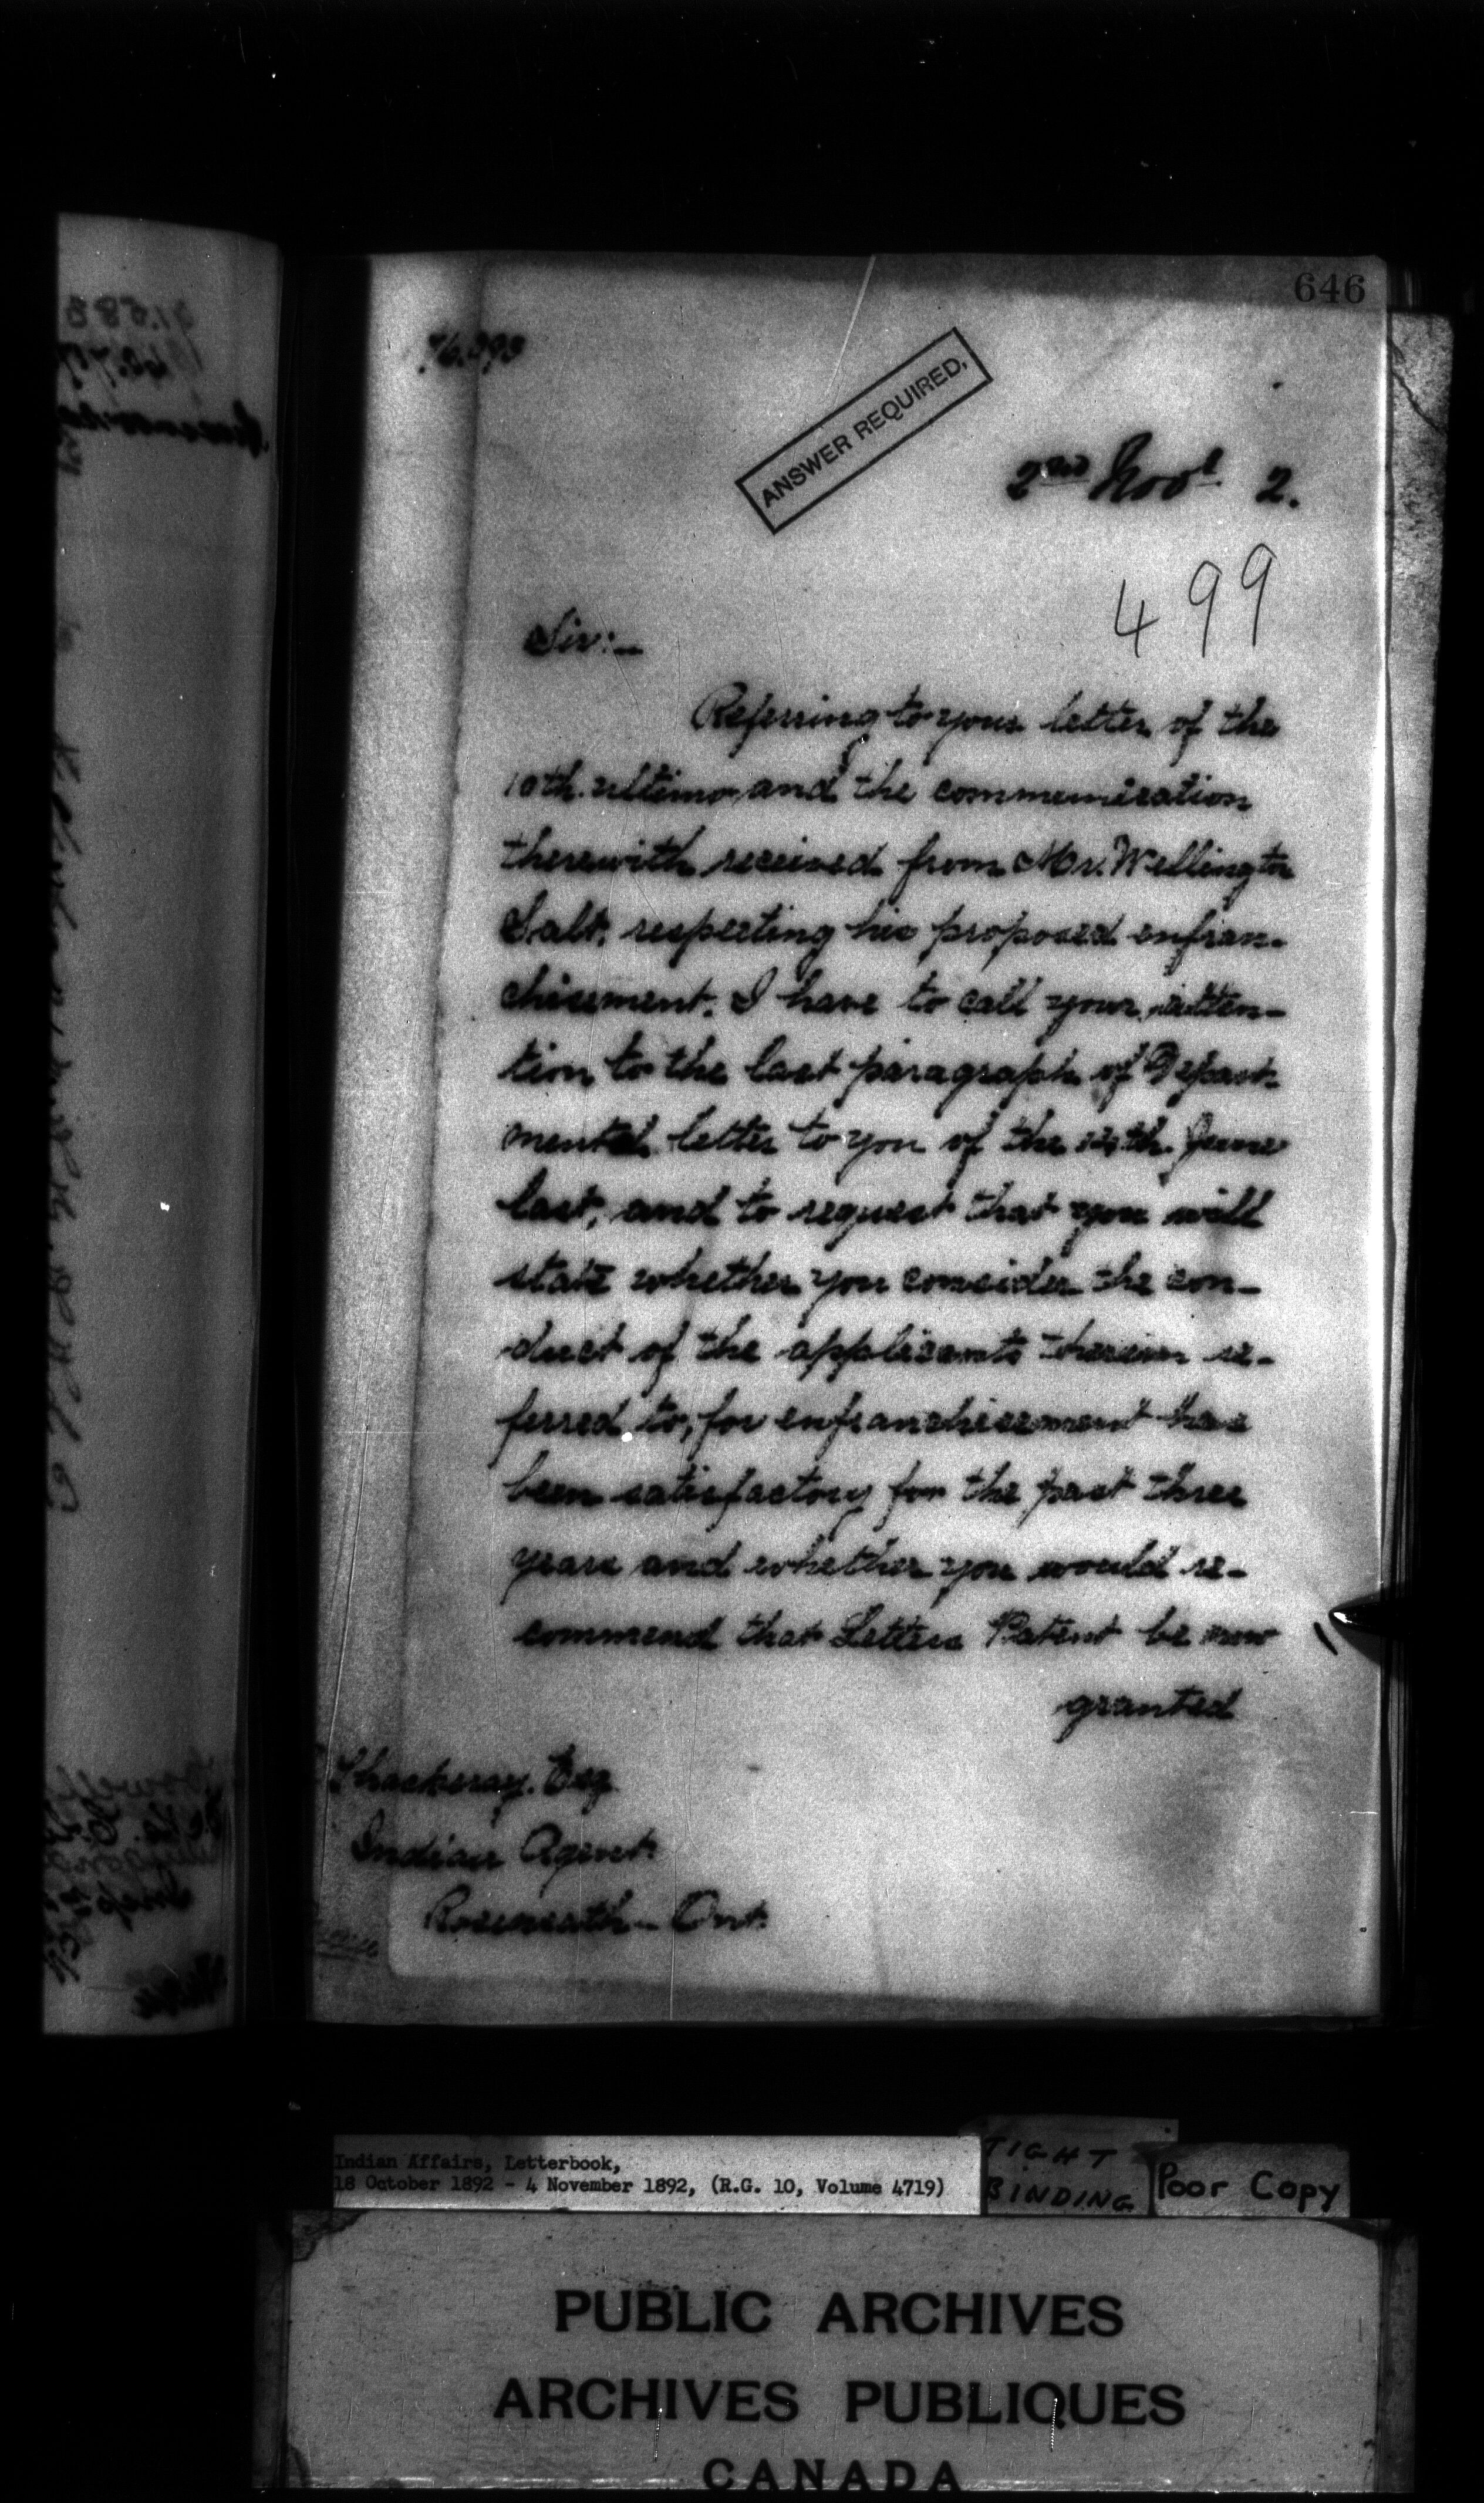 646
ANSWER REQUIRED.
2nd Novr 2.
499
Sir:—
Referring to your letter of the
10th. ultimo and the communication
therewith received from Mr. Wellington
Salt, respecting his proposed enfran-
chisement. I have to call your atten-
tion to the last paragraph of Depart-
mental letter to you of the June
last, and to request that you will
state whether you consider the con-
duct of the applicants therein re-
ferred to, for enfranchisement have
been satisfactory for the past three
years and whether you would re-
commend that Letters Patent be now
granted
Thackeray. Esq
Indian Agent.
Roseneath — Ont.
Indian Affairs, Letterbook,
18 October 1892 - 4 November 1892, (R.G. 10, Volume 4719)
TIGHT
BINDING
Poor Copy
PUBLIC ARCHIVES
ARCHIVES PUBLIQUES
CANADA